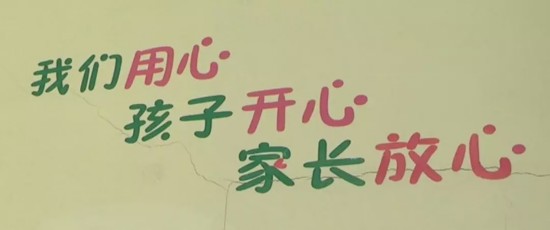 我们用心
孩子开心
家长放心